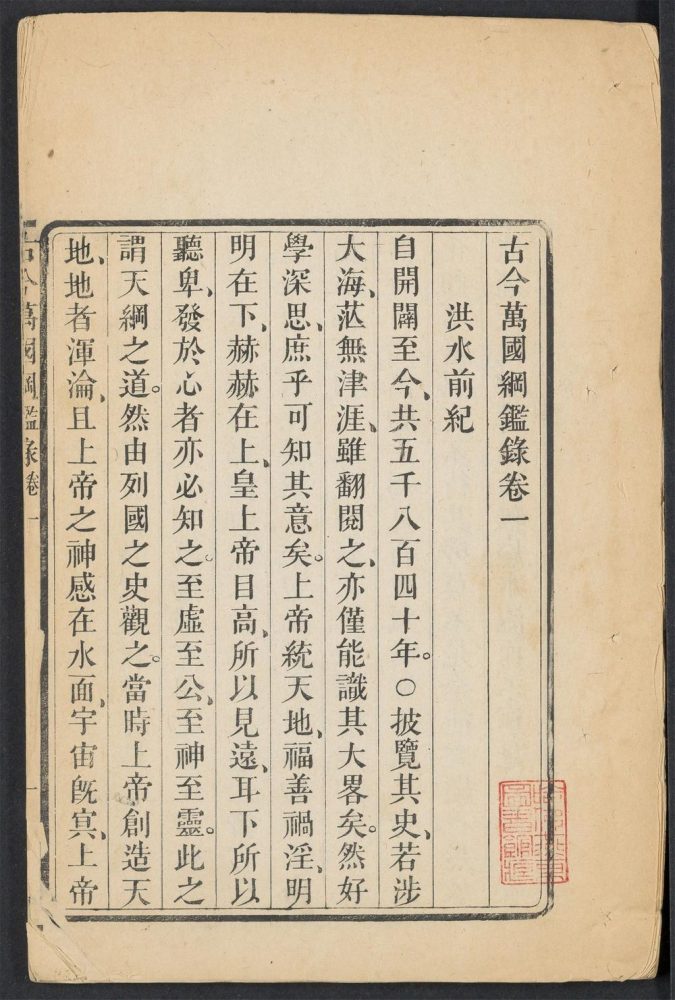 古今萬國綱鑑錄卷一
洪水前紀
自開闢至今、共五千八百四十年。○披覽其史、若涉
大海、茫無津涯、雖翻閱之、亦僅能識其大畧矣。然好
學深思、庶乎可知其意矣。上帝統天地、福善禍淫、明
明在下、赫赫在上、皇上帝目高、所以見遠、耳下所以
聽卑、發於心者亦必知之。至虛至公、至神至靈。此之
謂天綱之道。然由列國之史觀之。當時上帝創造天
地、地者渾淪、且上帝之神感在水面、宇宙旣寅、上帝
古今萬國綱鑑录卷一